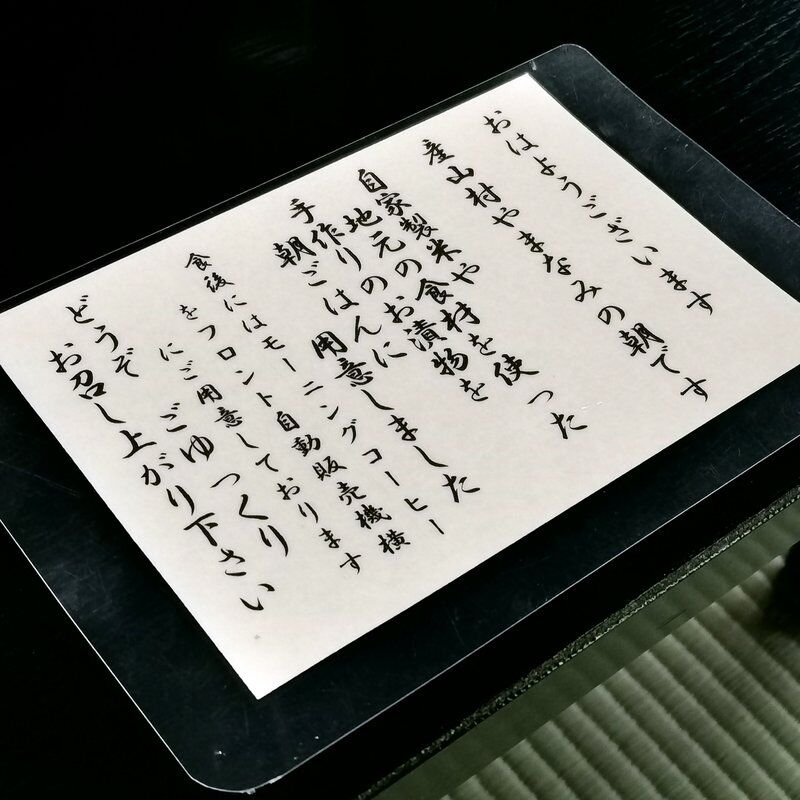 おはようございます
産山村やまなみの朝です
自家製米や
地元の食材を使った
手作りのお漬物を
朝ごはんに
用意しました
食後にはモーニングコーヒー
をフロント自動販売機横
にご用意しております
どうぞごゆっくり
お召し上がり下さい